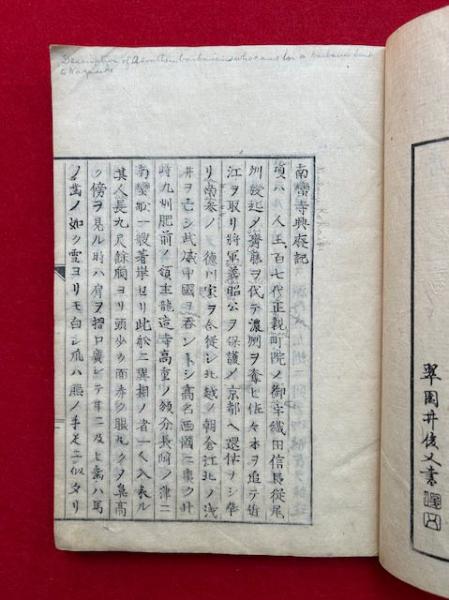 Description of a southern barbarian who came on a barbarian boat
to Nagasaki
翠園井俊又書
南蠻寺興廢記
頃ハ人王百七代正親町院ノ御宇織田信長從尾
州發起メ齋藤ヲ代テ濃刕ヲ奪ヒ佐々木ヲ追テ近
江ヲ取リ將軍義昭公ヲ保護メ京都ヘ還住ヲシ
リ南參ノ德川家ヲ合從シ北越ノ朝倉江北ノ浅
井ヲ亡シ武威中國ヲ吞ントシ高名西國ニ
時九州肥前ノ領主龍造寺高重ノ領分長崎ノ津ニ
南蠻舩一艘著岸セリ此舩ニ異相ノ者一人入表ル
其人長九尺餘胴ヨリ頭少ク面赤ク眼丸クメ鼻高
ク傍ヲ見ル時ハ肩ヲ摺口廣シテ耳ニ及ヒ齒ハ馬
ノ齒ノ如ク雪ヨリモ白シ爪ハ熊ノ手足ニ似タリ